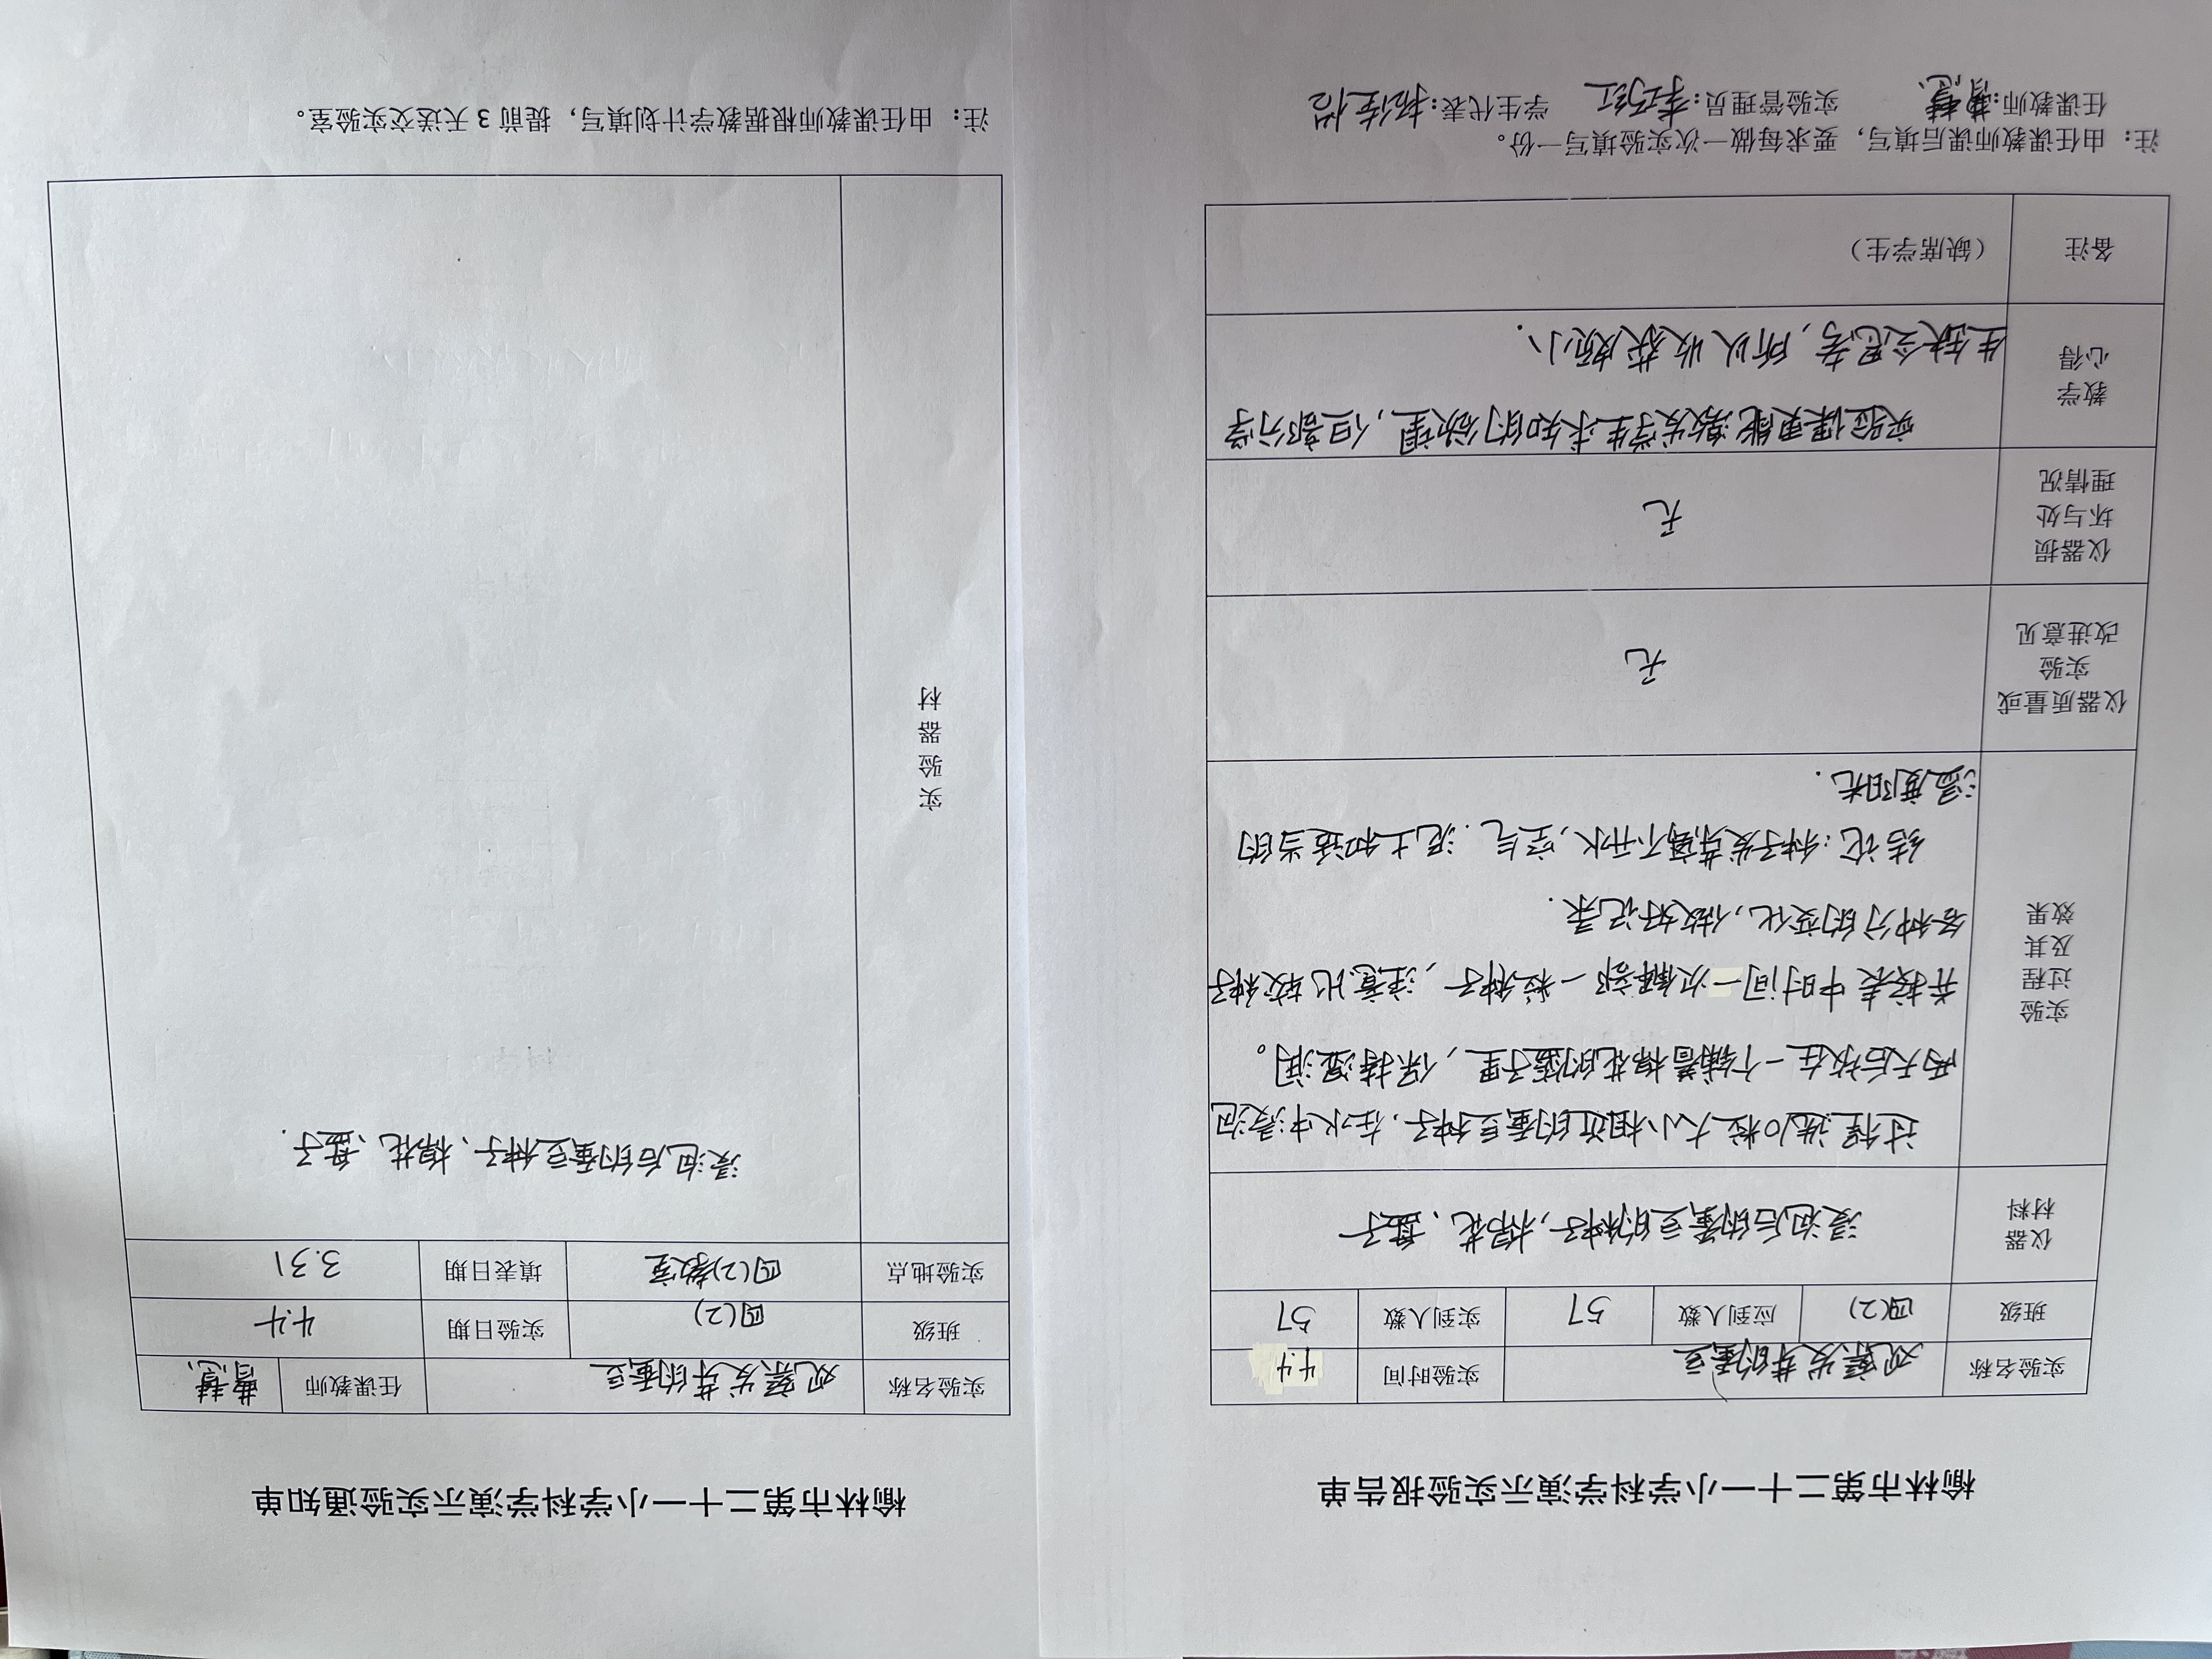 榆林市第二十一小学科学演示实验报告单
实验名称 观察发芽的蚕豆 实验时间 4.4
班级 四(2) 应到人数 57 实到人数 57
仪器材料 浸泡后的蚕豆的种子,棉花、盘子
实验过程及其效果
过程:选10粒大小相近的蚕豆种子,在水中浸泡
两天后放在一个铺着棉花的盘子里,保持湿润。
并按表中时间一次解剖一粒种子,注意比较种子
各种分的变化,做好记录.
结论:种子发芽离不开水,空气.泥土和适当的
温度阳光.
仪器质量或实验改进意见 无
仪器损坏与处理情况 无
教学心得
实验课更能激发学生求知的欲望,但部分学
生缺乏思考,所以收获颇小.
备注 (缺席学生)
注: 由任课教师课后填写,要求每做一次实验填写一份。
任课教师: 实验管理员:李巧红 学生代表:
榆林市第二十一小学科学演示实验通知单
实验名称 观察发芽的蚕豆 任课教师
班级 四(2) 实验日期 4.4
实验地点 四(2)教室 填表日期 3.31
实验器材
浸泡后的蚕豆种子、棉花、盘子.
注: 由任课教师根据教学计划填写,提前 3 天送交实验室。